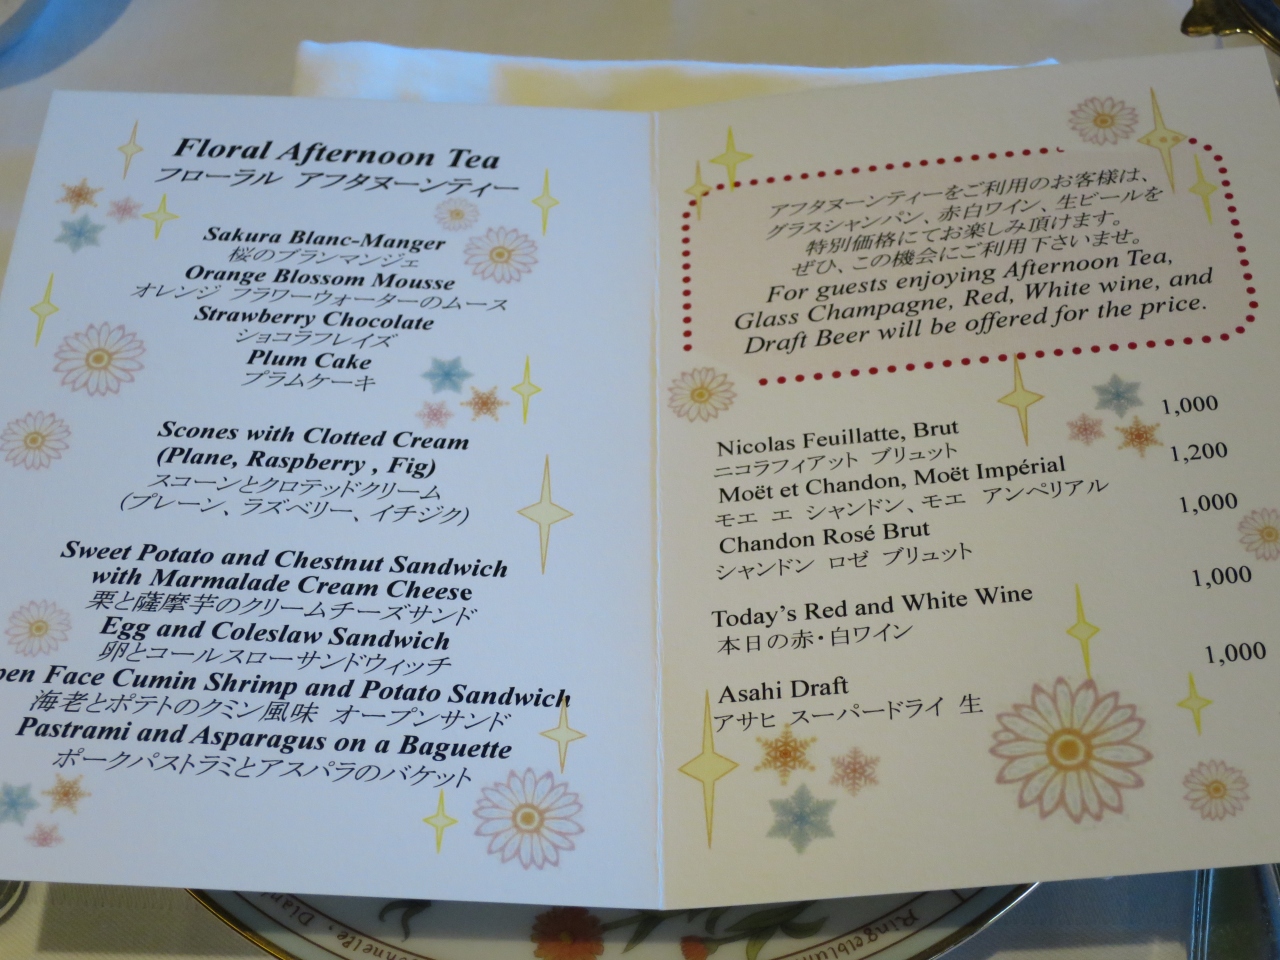 Floral Afternoon Tea
フローラル アフタヌーンティー
Sakura Blanc-Manger
桜のブランマンジェ
Orange Blossom Mousse
オレンジ フラワーウォーターのムース
Strawberry Chocolate
ショコラフレイズ
Plum Cake
プラムケーキ
Scones with Clotted Cream
(Plane, Raspberry , Fig)
スコーンとクロテッドクリーム
(プレーン、ラズベリー、イチジク)
Sweet Potato and Chestnut Sandwich
with Marmalade Cream Cheese
栗と薩摩芋のクリームチーズサンド
Egg and Coleslaw Sandwich
卵とコールスローサンドウィッチ
pen Face Cumin Shrimp and Potato Sandwich
海老とポテトのクミン風味 オープンサンド
Pastrami and Asparagus on a Baguette
ポークパストラミとアスパラのバケット
アフタヌーンティーをご利用のお客様は、
グラスシャンパン、赤白ワイン、生ビールを
特別価格にてお楽しみ頂けます。
ぜひ、この機会にご利用下さいませ。
For guests enjoying Afternoon Tea,
Glass Champagne, Red, White wine, and
Draft Beer will be offered for the price.
Nicolas Feuillatte, Brut 1,000
ニコラフィアット ブリュット
Moët et Chandon, Moët Impérial 1,200
モエ エ シャンドン、モエ アンペリアル
Chandon Rosé Brut 1,000
シャンドン ロゼ ブリュット
Today's Red and White Wine 1,000
本日の赤・白ワイン
Asahi Draft 1,000
アサヒ スーパードライ 生